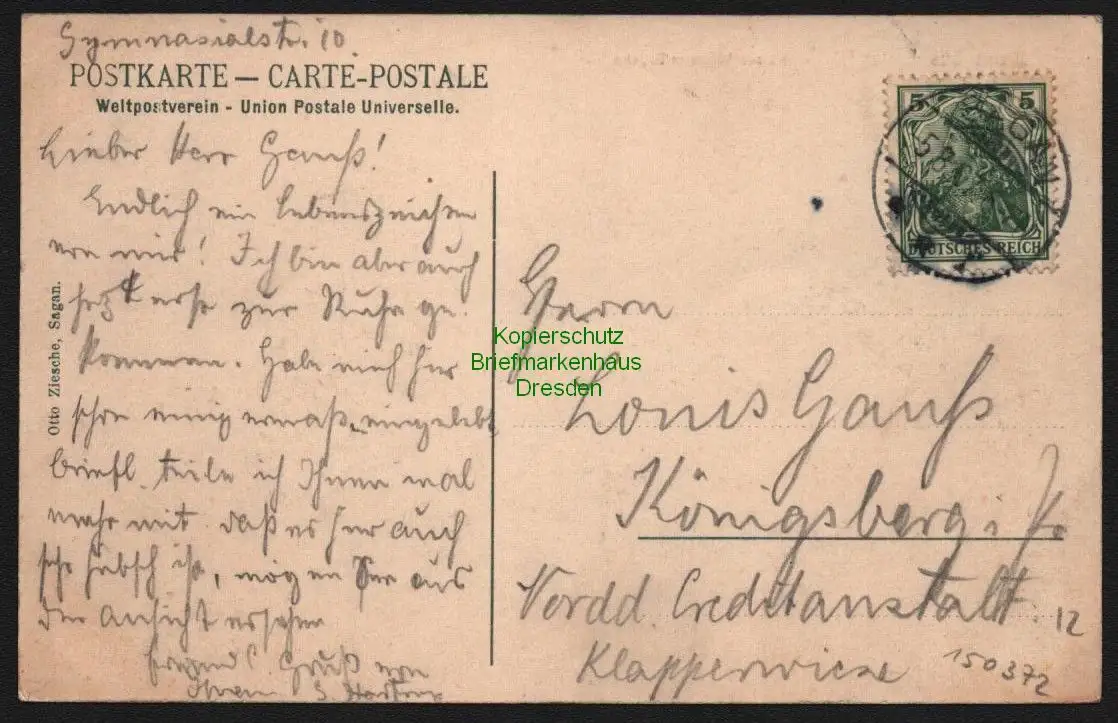 Gymnasialstr. 10.
POSTKARTE — CARTE-POSTALE
Weltpostverein - Union Postale Universelle.
Lieber Herr Gauß!
Endlich ein Lebenszeichen
von mir! Ich bin aber auch
jetzt erst zur Ruhe ge-
kommen. Habe mich hier
schon einigermaß. eingelebt
briefl. teile ich Ihnen mal
mehr mit. daß es hier auch
sehr hübsch ist, mögen Sie aus
der Ansicht ersehen
Gruß von
Ihrem
Otto Ziesche, Sagan.
5 5
DEUTSCHES REICH
Herrn
Louis Gauß
Königsberg i. Pr.
Nordd. Creditanstalt
Klapperwiese
12
150372
Kopierschutz
Briefmarkenhaus
Dresden